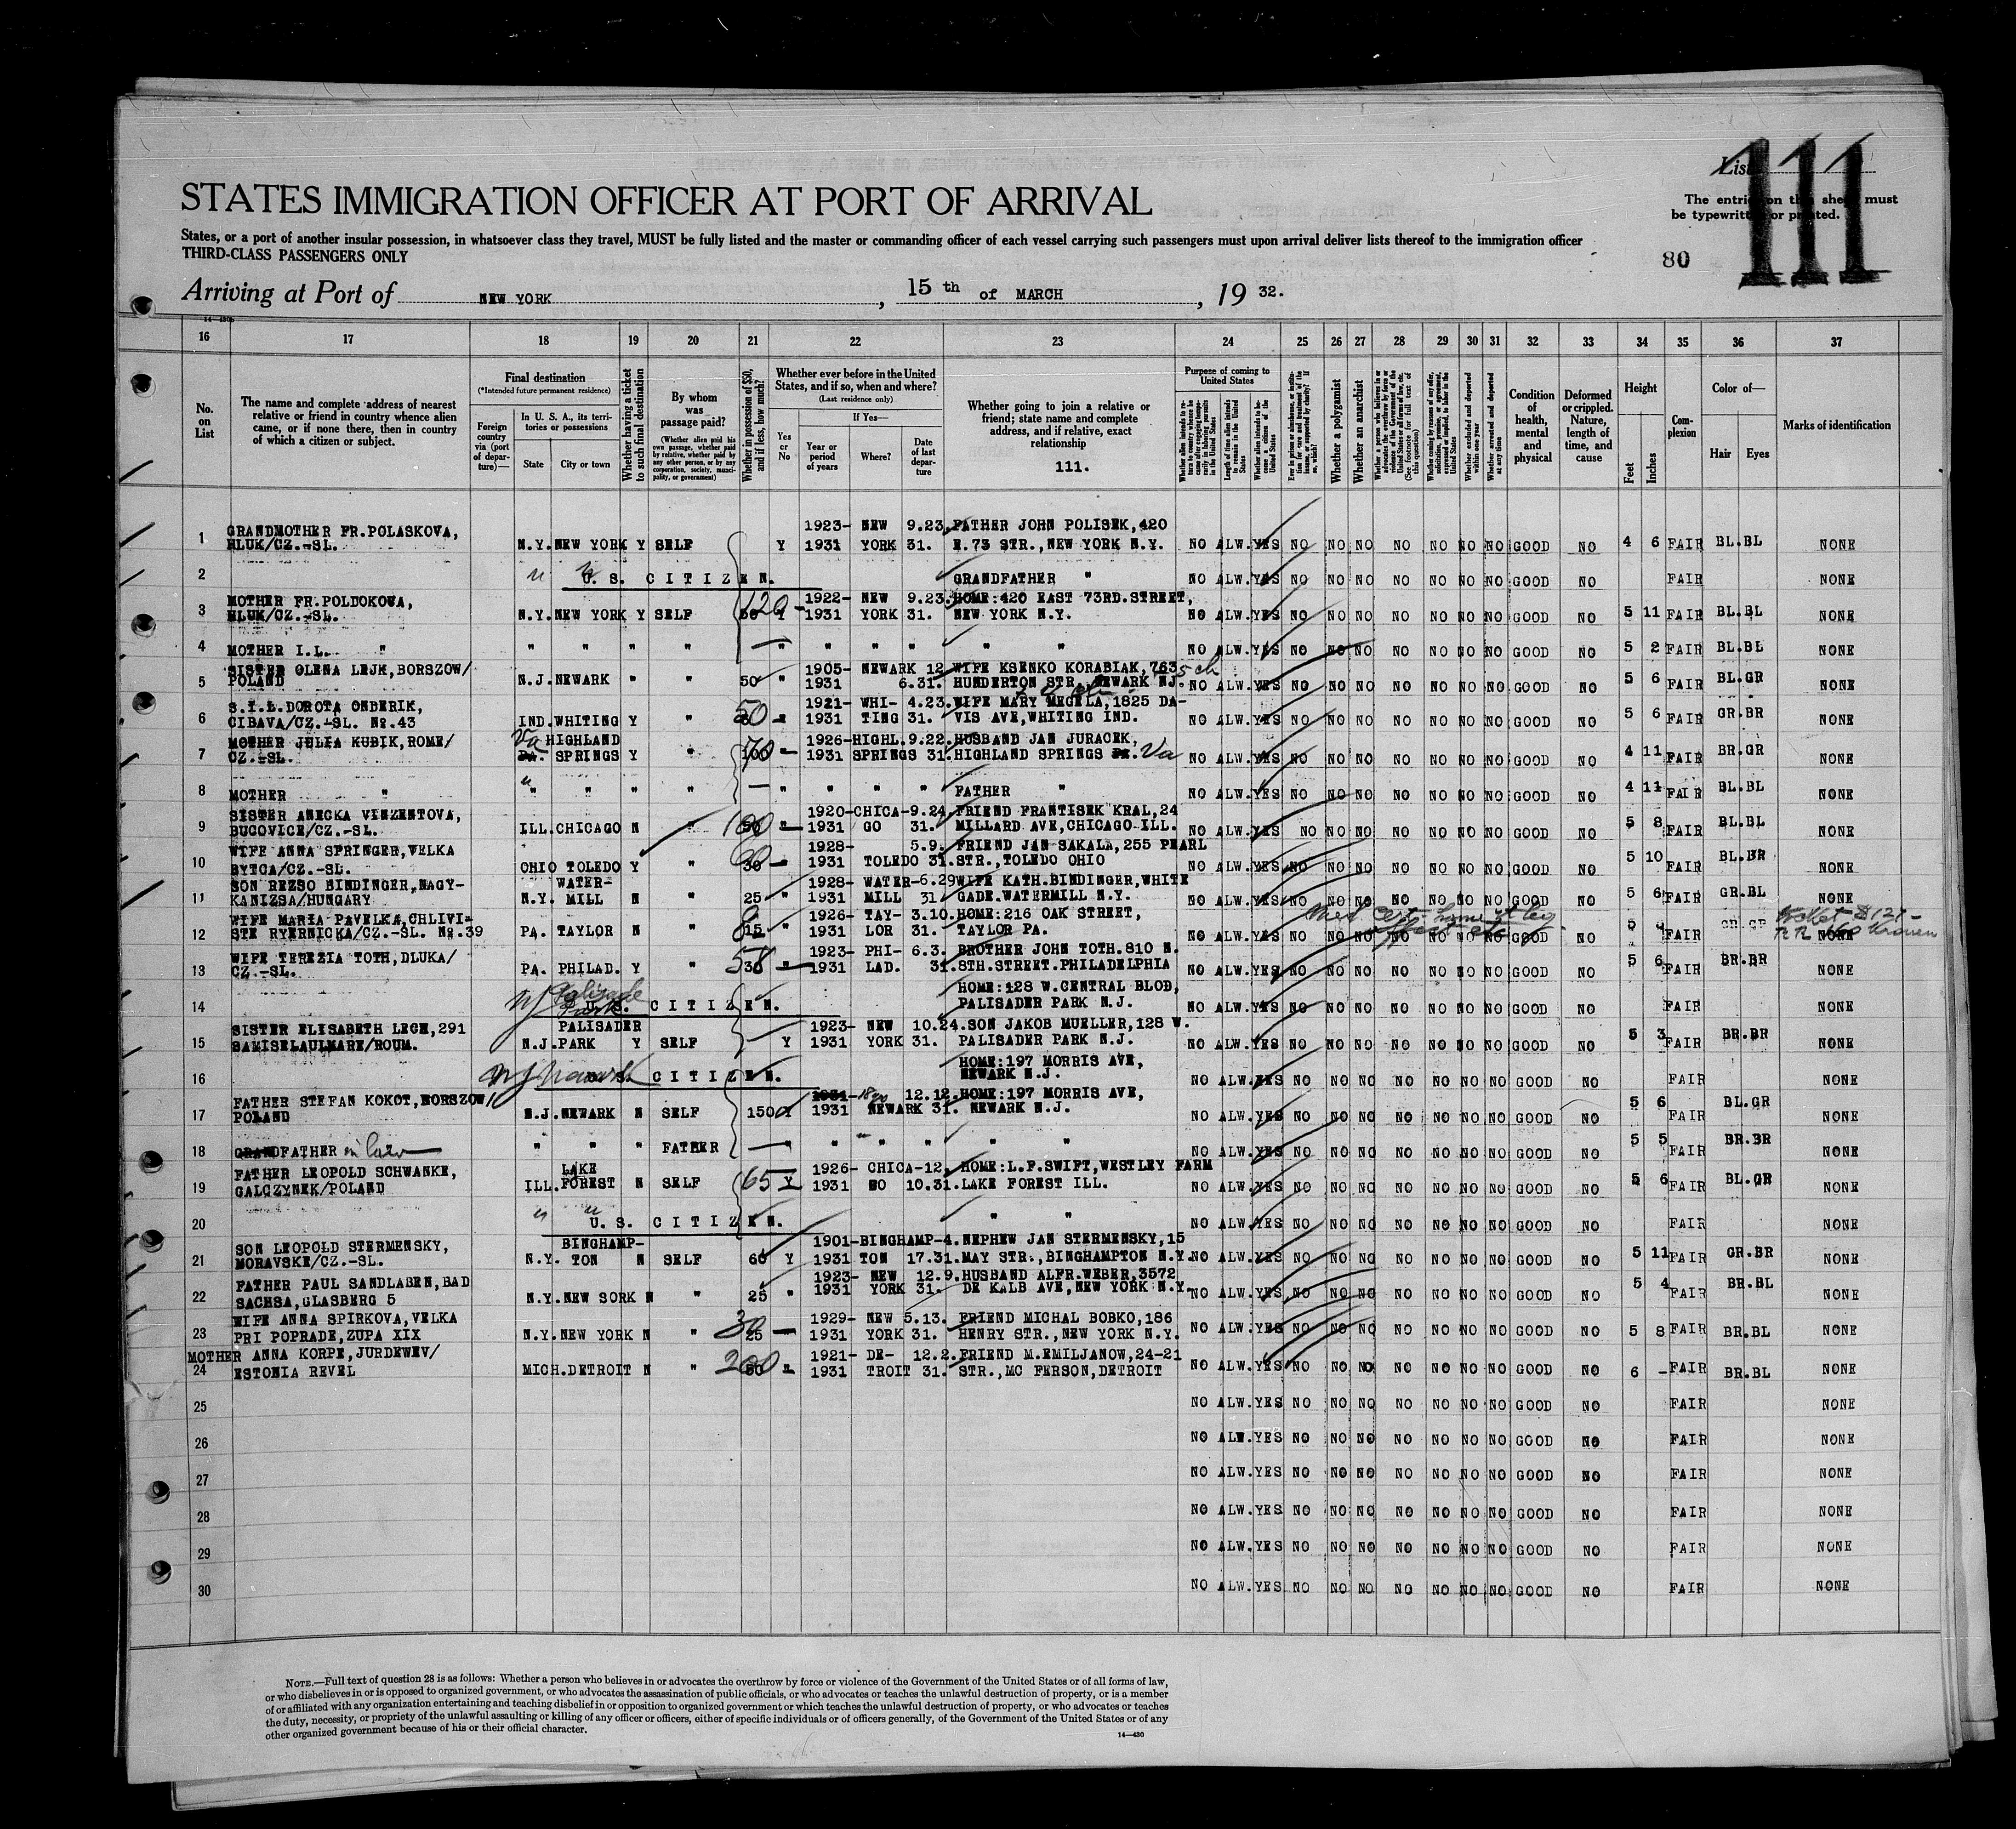 List 111
STATES IMMIGRATION OFFICER AT PORT OF ARRIVAL
The entries on this sheet must
be typewritten or printed.
States, or a port of another insular possession, in whatsoever class they travel, MUST be fully listed and the master or commanding officer of each vessel carrying such passengers must upon arrival deliver lists thereof to the immigration officer
THIRD-CLASS PASSENGERS ONLY
80
Arriving at Port of NEW YORK, 15 th of MARCH, 19 32.
14-430b
16 17 18 19 20 21 22 23 24 25 26 27 28 29 30 31 32 33 34 35 36 37
No. on List
The name and complete address of nearest relative or friend in country whence alien came, or if none there, then in country of which a citizen or subject.
Final destination
(*Intended future permanent residence)
Foreign country via (port of departure)—
In U. S. A., its territories or possessions
State
City or town
Whether having a ticket to such final destination
By whom was passage paid?
(Whether alien paid his own passage, whether paid by relative, whether paid by any other person, or by any corporation, society, municipality, or government)
Whether in possession of $50, and if less, how much?
Whether ever before in the United States, and if so, when and where?
(Last residence only)
Yes or No
If Yes—
Year or period of years
Where?
Date of last departure
Whether going to join a relative or friend; state name and complete address, and if relative, exact relationship
111.
Purpose of coming to United States
Length of time alien intends to remain in the United States
Whether alien intends to become a citizen of the United States
Whether a polygamist
Whether an anarchist
(See footnote for full text of this question)
Whether excluded and deported within one year
Whether arrested and deported at any time
Condition of health, mental and physical
Deformed or crippled. Nature, length of time, and cause
Height
Feet
Inches
Complexion
Color of—
Hair
Eyes
Marks of identification
1 GRANDMOTHER FR.POLASKOVA, 1923- NEW 9.23. FATHER JOHN POLISEK,420
HLUK/CZ.-SL. N.Y. NEW YORK Y SELF Y 1931 YORK 31. E.73 STR.,NEW YORK N.Y. NO ALW. YES NO NO NO NO NO NO NO GOOD NO 4 6 FAIR BL.BL NONE
2 " " U. S. CITIZEN. GRANDFATHER " NO ALW. YES NO NO NO NO NO NO NO GOOD NO FAIR NONE
3 MOTHER FR.POLDOKOVA, 120 1922- NEW 9.23. HOME:420 EAST 73RD.STREET,
HLUK/CZ.-SL. N.Y. NEW YORK Y SELF 50 Y 1931 YORK 31. NEW YORK N.Y. NO ALW. YES NO NO NO NO NO NO NO GOOD NO 5 11 FAIR BL.BL NONE
4 MOTHER I.L. " " " " " — " " " " " " NO ALW. YES NO NO NO NO NO NO NO GOOD NO 5 2 FAIR BL.BL NONE
5 SISTER OLENA LEJK,BORSZOW/ 1905- NEWARK 12. WIFE KSENKO KORABIAK,763
POLAND N.J. NEWARK " " 50 " 1931 6.31. HUNDERTON STR. NEWARK NJ. NO ALW. YES NO NO NO NO NO NO NO GOOD NO 5 6 FAIR BL.GR NONE
6 S.I.L.DOROTA ONDERIK, 50 1921- WHI- 4.23. WIFE MARY MEGELA,1825 DA-
CIBAVA/CZ.-SL. Nr.43 IND. WHITING Y " " 1931 TING 31. VIS AVE,WHITING IND. NO ALW. YES NO NO NO NO NO NO NO GOOD NO 5 6 FAIR GR.BR NONE
7 MOTHER JULIA KUBIK,ROME/ Va HIGHLAND 70 1926- HIGHL. 9.22. HUSBAND JAN JURACEK,
CZ.-SL. PA. SPRINGS Y " 100 1931 SPRINGS 31. HIGHLAND SPRINGS PA. Va NO ALW. YES NO NO NO NO NO NO NO GOOD NO 4 11 FAIR BR.GR NONE
8 MOTHER " " " " " — " " " " FATHER " NO ALW. YES NO NO NO NO NO NO NO GOOD NO 4 11 FAIR BL.BL NONE
9 SISTER ANECKA VINZENTOVA, 100 1920- CHICA- 9.24. FRIEND FRANTISEK KRAL,24
BUCOVICE/CZ.-SL. ILL. CHICAGO N " 50 " 1931 GO 31. MILLARD AVE,CHICAGO ILL. NO ALW. YES NO NO NO NO NO NO NO GOOD NO 5 8 FAIR BL.BL NONE
10 WIFE ANNA SPRINGER,VELKA 60 1928- 5.9. FRIEND JAN SAKALA,255 PEARL
BYTCA/CZ.-SL. OHIO TOLEDO Y " 30 1931 TOLEDO 31. STR.,TOLEDO OHIO NO ALW. YES NO NO NO NO NO NO NO GOOD NO 5 10 FAIR BL.BR NONE
11 SON REZSO BINDINGER,NAGY- WATER- 1928- WATER- 6.29 WIFE KATH.BINDINGER,WHITE
KANIZSA/HUNGARY N.Y. MILL N " 25 " 1931 MILL 31. GADE.WATERMILL N.Y. NO ALW. YES NO NO NO NO NO NO NO GOOD NO 5 6 FAIR GR.BL NONE
12 WIFE MARIA PAVELKA,CHLIVI- 8 1926- TAY- 3.10. HOME:216 OAK STREET,
STE RYERNICKA/CZ.-SL. Nr.39 PA. TAYLOR N " 15 " 1931 LOR 31. TAYLOR PA. NO ALW. YES NO NO NO NO NO NO NO GOOD NO 5 FAIR NONE
13 WIFE TEREZIA TOTH,DLUKA/ 58 1923- PHI- 6.3. BROTHER JOHN TOTH.810 N.
CZ.-SL. PA. PHILAD. Y " 30 " 1931 LAD. 31. 5TH.STREET.PHILADELPHIA NO ALW. YES NO NO NO NO NO NO NO GOOD NO 5 6 FAIR BR.BR NONE
14 NJ Palisade Park U. S. CITIZEN. HOME:128 W.CENTRAL BLOD,
PALISADER PARK N.J. NO ALW. YES NO NO NO NO NO NO NO GOOD NO FAIR NONE
15 SISTER ELISABETH LECH,291 PALISADER 1923- NEW 10.24. SON JAKOB MUELLER,128 W.
SAMISELAULMARE/ROUM. N.J. PARK Y SELF — Y 1931 YORK 31. PALISADER PARK N.J. NO ALW. YES NO NO NO NO NO NO NO GOOD NO 5 3 FAIR BR.BR NONE
16 NJ Newark U. S. CITIZEN. HOME:197 MORRIS AVE,
NEWARK N.J. NO ALW. YES NO NO NO NO NO NO NO GOOD NO FAIR NONE
17 FATHER STEFAN KOKOT,BORSZOW/ 12.12. HOME:197 MORRIS AVE,
POLAND N.J. NEWARK N SELF 150 Y 1931 NEWARK 31. NEWARK N.J. NO ALW. YES NO NO NO NO NO NO NO GOOD NO 5 6 FAIR BL.GR NONE
18 GRANDFATHER in law " " " FATHER — " " " " " " NO ALW. YES NO NO NO NO NO NO NO GOOD NO 5 5 FAIR BR.BR NONE
19 FATHER LEOPOLD SCHWANKE, LAKE 1926- CHICA- 12. HOME:L.F.SWIFT,WESTLEY FARM
GALCZYNEK/POLAND ILL. FOREST N SELF 65 Y 1931 GO 10.31. LAKE FOREST ILL. NO ALW. YES NO NO NO NO NO NO NO GOOD NO 5 6 FAIR BL.GR NONE
20 " " U. S. CITIZEN. " " NO ALW. YES NO NO NO NO NO NO NO GOOD NO FAIR NONE
21 SON LEOPOLD STERMENSKY, BINGHAMP- 1901- BINGHAMP- 4. NEPHEW JAN STERMENSKY,15
MORAVSKE/CZ.-SL. N.Y. TON N SELF 60 Y 1931 TON 17.31. MAY STR.,BINGHAMPTON N.Y. NO ALW. YES NO NO NO NO NO NO NO GOOD NO 5 11 FAIR GR.BR NONE
22 FATHER PAUL SANDLABEN,BAD 1923- NEW 12.9. HUSBAND ALFR.WEBER,3572
SACHSA,GLASBERG 5 N.Y. NEW SORK N " 25 " 1931 YORK 31. DE KALB AVE,NEW YORK N.Y. NO ALW. YES NO NO NO NO NO NO NO GOOD NO 5 4 FAIR BR.BL NONE
23 WIFE ANNA SPIRKOVA,VELKA 30 1929- NEW 5.13. FRIEND MICHAL BOBKO,186
PRI POPRADE,ZUPA XIX N.Y. NEW YORK N " 25 1931 YORK 31. HENRY STR.,NEW YORK N.Y. NO ALW. YES NO NO NO NO NO NO NO GOOD NO 5 8 FAIR BR.BL NONE
24 MOTHER ANNA KORPE,JURDEWEV/ 200 1921- DE- 12.2. FRIEND M.EMILJANOW,24-21
ESTONIA REVEL MICH. DETROIT N " 50 " 1931 TROIT 31. STR.,MC FERSON,DETROIT NO ALW. YES NO NO NO NO NO NO NO GOOD NO 6 - FAIR BR.BL NONE
25 NO ALW. YES NO NO NO NO NO NO NO GOOD NO FAIR NONE
26 NO ALW. YES NO NO NO NO NO NO NO GOOD NO FAIR NONE
27 NO ALW. YES NO NO NO NO NO NO NO GOOD NO FAIR NONE
28 NO ALW. YES NO NO NO NO NO NO NO GOOD NO FAIR NONE
29 NO ALW. YES NO NO NO NO NO NO NO GOOD NO FAIR NONE
30 NO ALW. YES NO NO NO NO NO NO NO GOOD NO FAIR NONE
NOTE.—Full text of question 28 is as follows: Whether a person who believes in or advocates the overthrow by force or violence of the Government of the United States or of all forms of law,
or who disbelieves in or is opposed to organized government, or who advocates the assassination of public officials, or who advocates or teaches the unlawful destruction of property, or is a member
of or affiliated with any organization entertaining and teaching disbelief in or opposition to organized government or which teaches the unlawful destruction of property, or who advocates or teaches
the duty, necessity, or propriety of the unlawful assaulting or killing of any officer or officers, either of specific individuals or of officers generally, of the Government of the United States or of any
other organized government because of his or their official character.
14—430